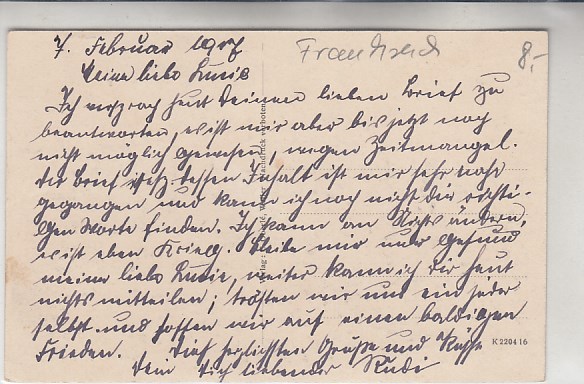 7. Februar 1917
Frankreich
8.-
Meine liebe Luzie
Ich versprach heut Deinen lieben Brief zu
beantworten, es ist mir aber bis jetzt noch
nicht möglich gewesen, wegen Zeitmangel.
Der Brief dessen Inhalt ist mir sehr nahe
gegangen und kann ich noch nicht die richti-
gen Worte finden. Ich kann an Nichts ändern;
es ist eben Krieg. Bleibe mir nur gesund
meine liebe Luzie, weiter kann ich dir heut
nichts mitteilen; trösten wir uns ein jeder
selbst und hoffen wir auf einen baldigen
Frieden. Die herzlichsten Grüße und Küsse
Dein Dich liebender Rudi
K 220416
Nachdruck verboten